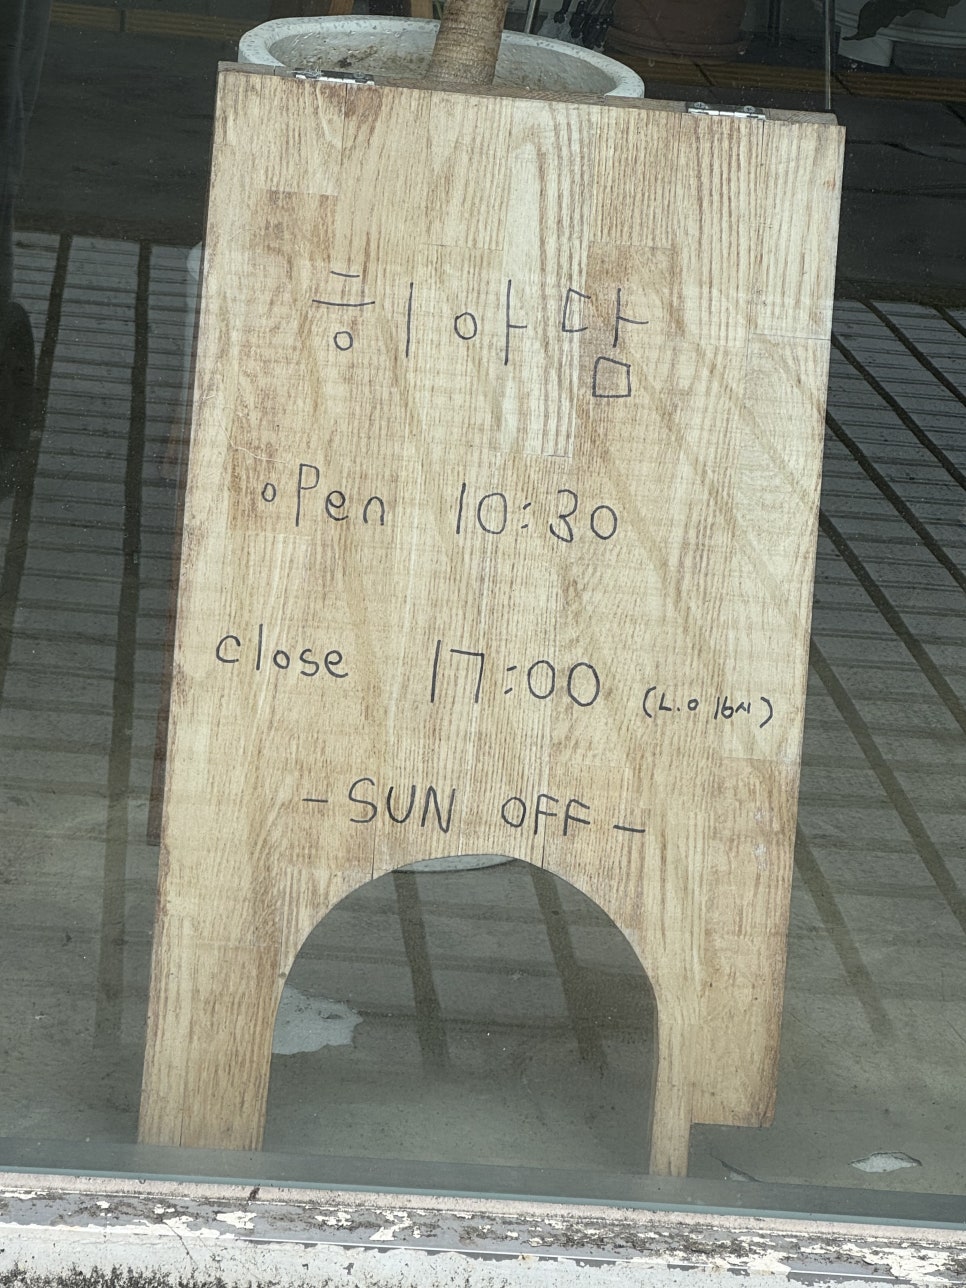 희아담
open 10:30
close 17:00 (L.O 16시)
- SUN OFF -